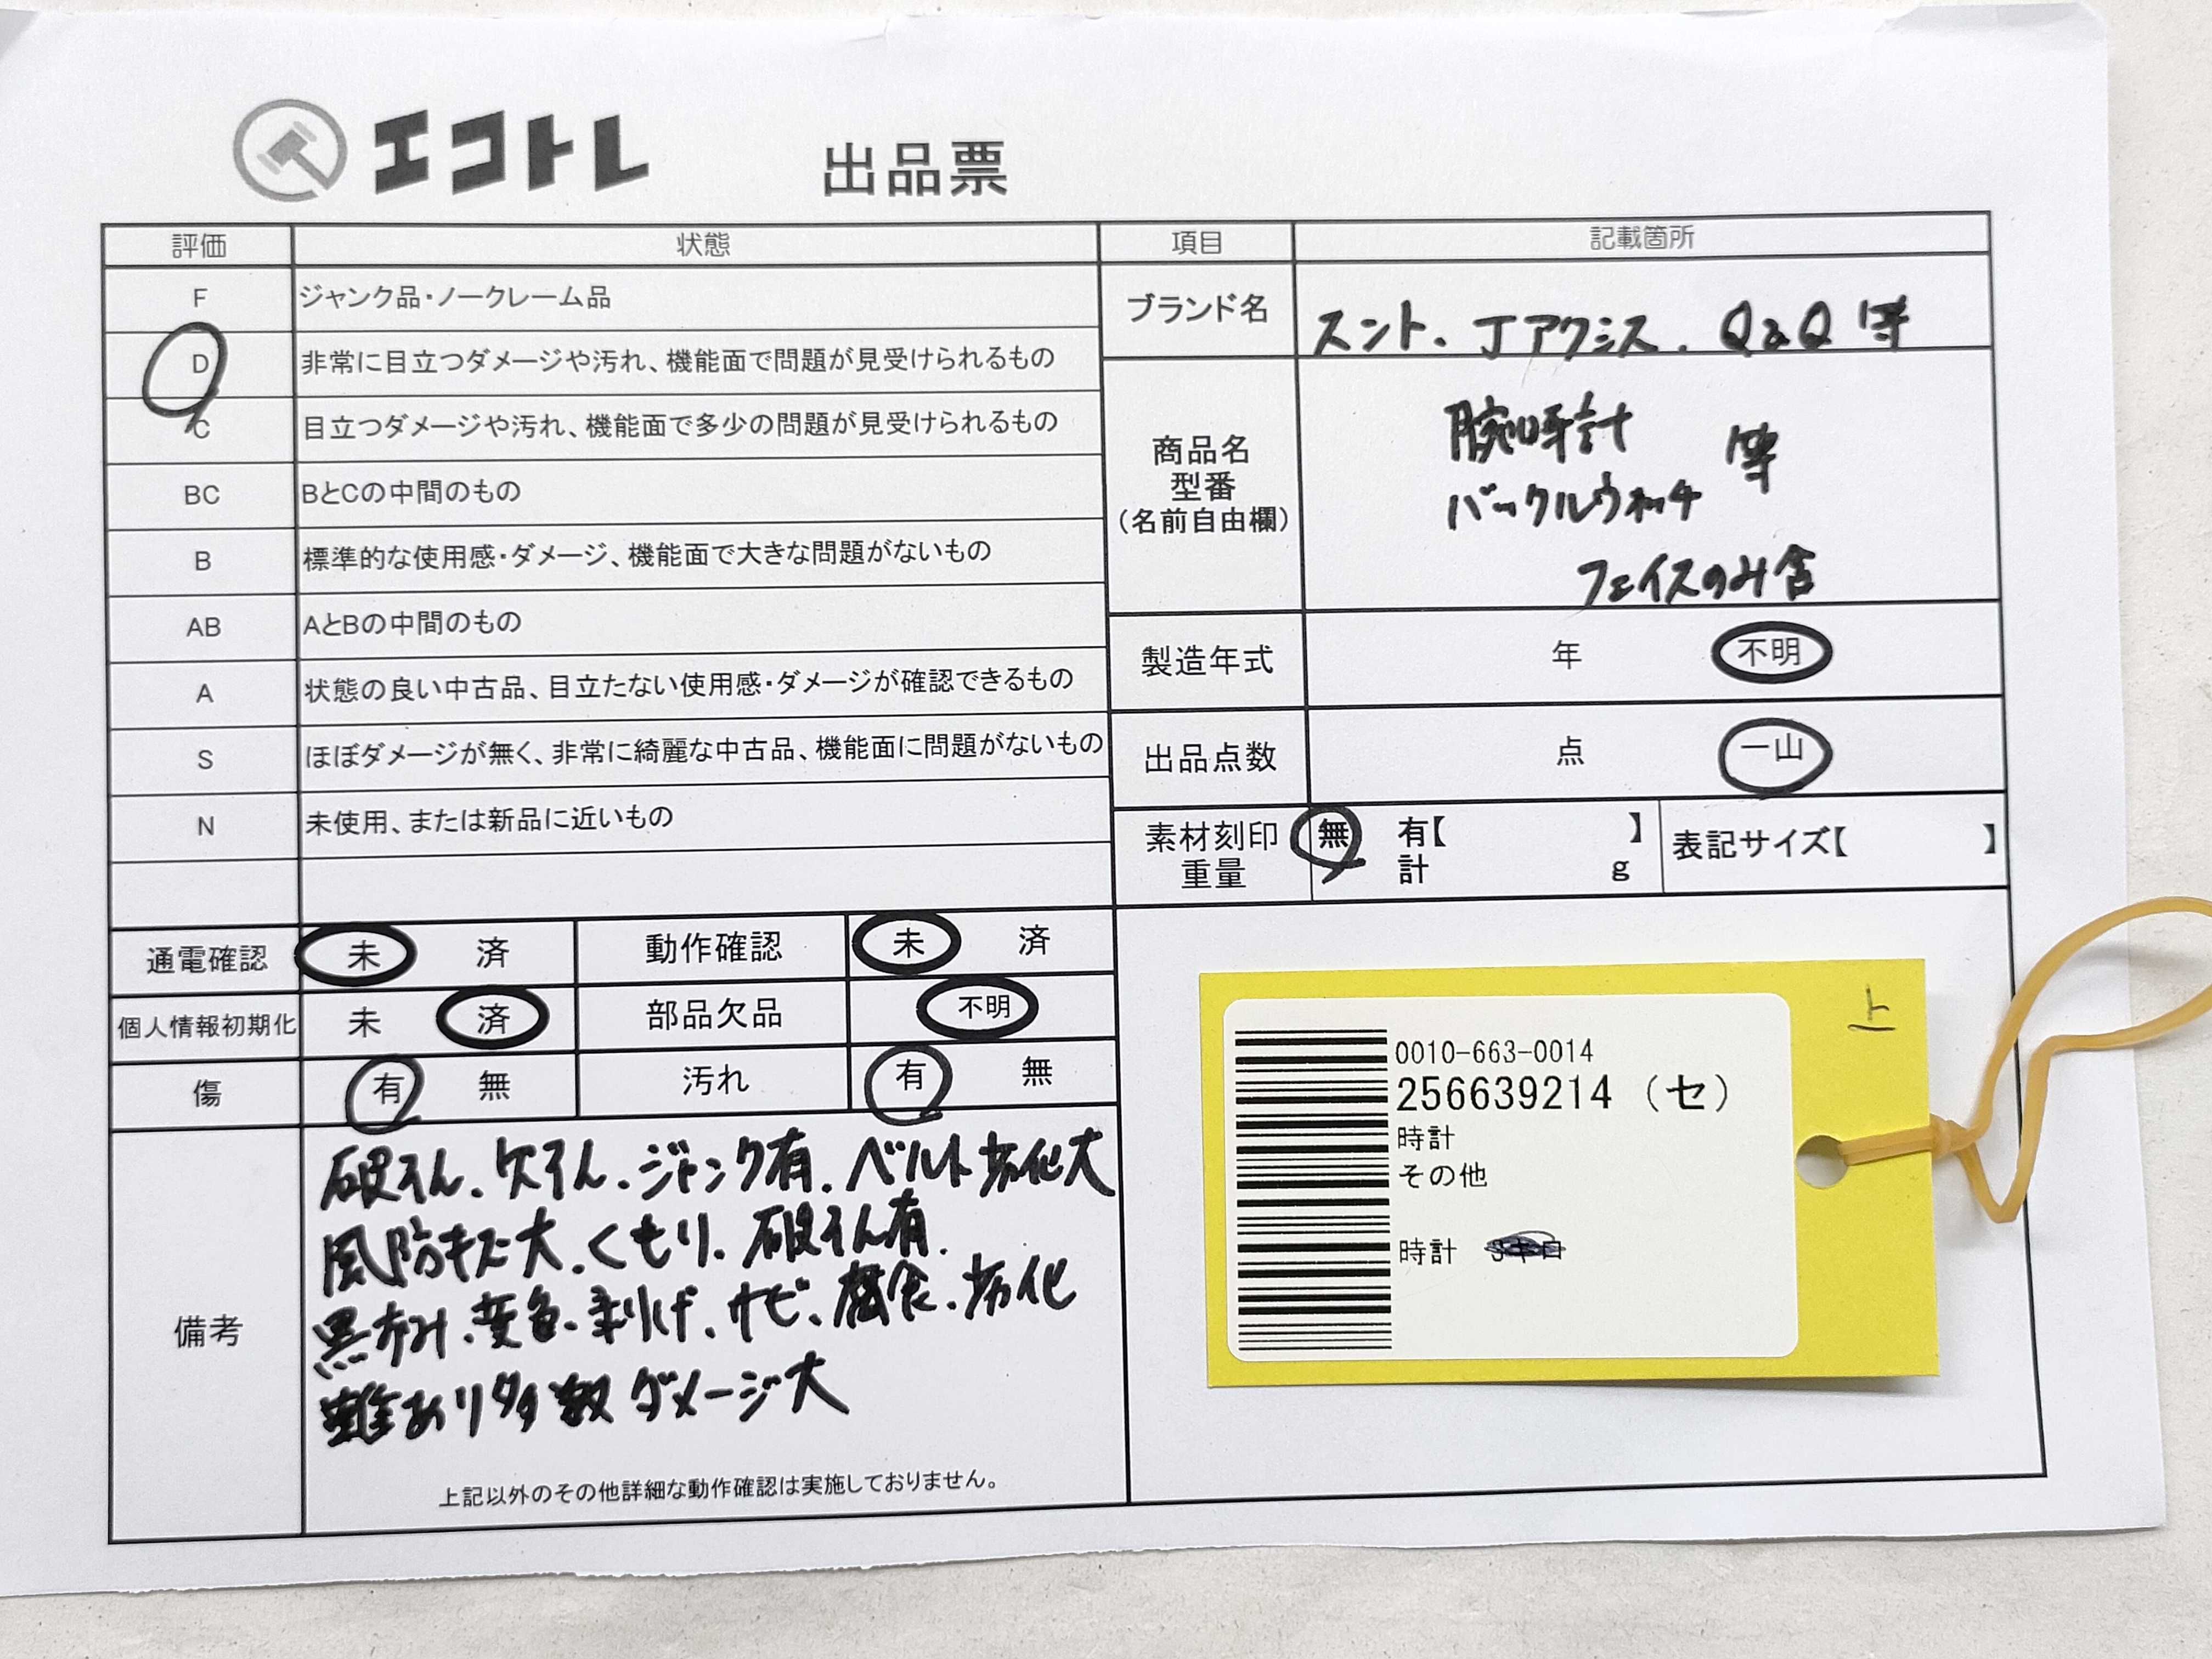 エコトレ 出品票
評価 状態
F ジャンク品・ノークレーム品
D 非常に目立つダメージや汚れ、機能面で問題が見受けられるもの
C 目立つダメージや汚れ、機能面で多少の問題が見受けられるもの
BC BとCの中間のもの
B 標準的な使用感・ダメージ、機能面で大きな問題がないもの
AB AとBの中間のもの
A 状態の良い中古品、目立たない使用感・ダメージが確認できるもの
S ほぼダメージが無く、非常に綺麗な中古品、機能面に問題がないもの
N 未使用、または新品に近いもの
通電確認 未 済 動作確認 未 済
個人情報初期化 未 済 部品欠品 不明
傷 有 無 汚れ 有 無
備考
破そん、欠そん、ジャンク有、ベルト劣化大
風防キズ大、くもり、破そん有、
黒ずみ、変色、剥げ、サビ、腐食、劣化
難あり多数 ダメージ大
上記以外のその他詳細な動作確認は実施しておりません。
項目 記載箇所
ブランド名 スント、Jアクシス、Q&Q 等
商品名
型番
(名前自由欄)
腕時計 等
バックルウォッチ
フェイスのみ含
製造年式 年 不明
出品点数 点 一山
素材刻印 無 有【 】 表記サイズ【 】
重量 計 g
上
0010-663-0014
256639214 (セ)
時計
その他
時計